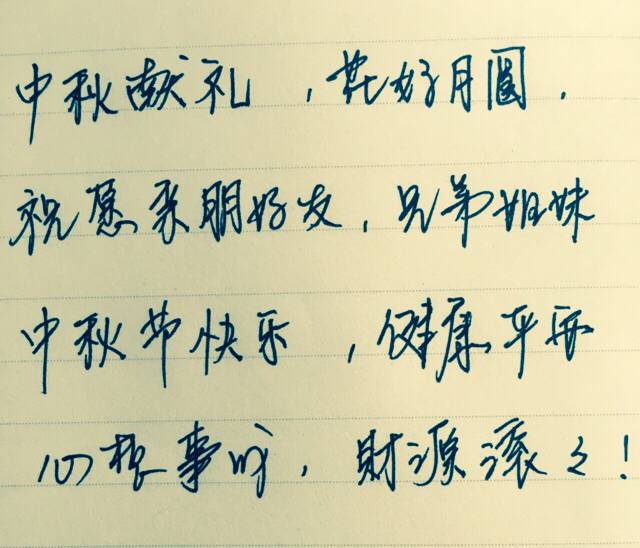 中秋献礼，花好月圆.
祝愿亲朋好友，兄弟姐妹
中秋节快乐，健康平安
心想事成，财源滚々！